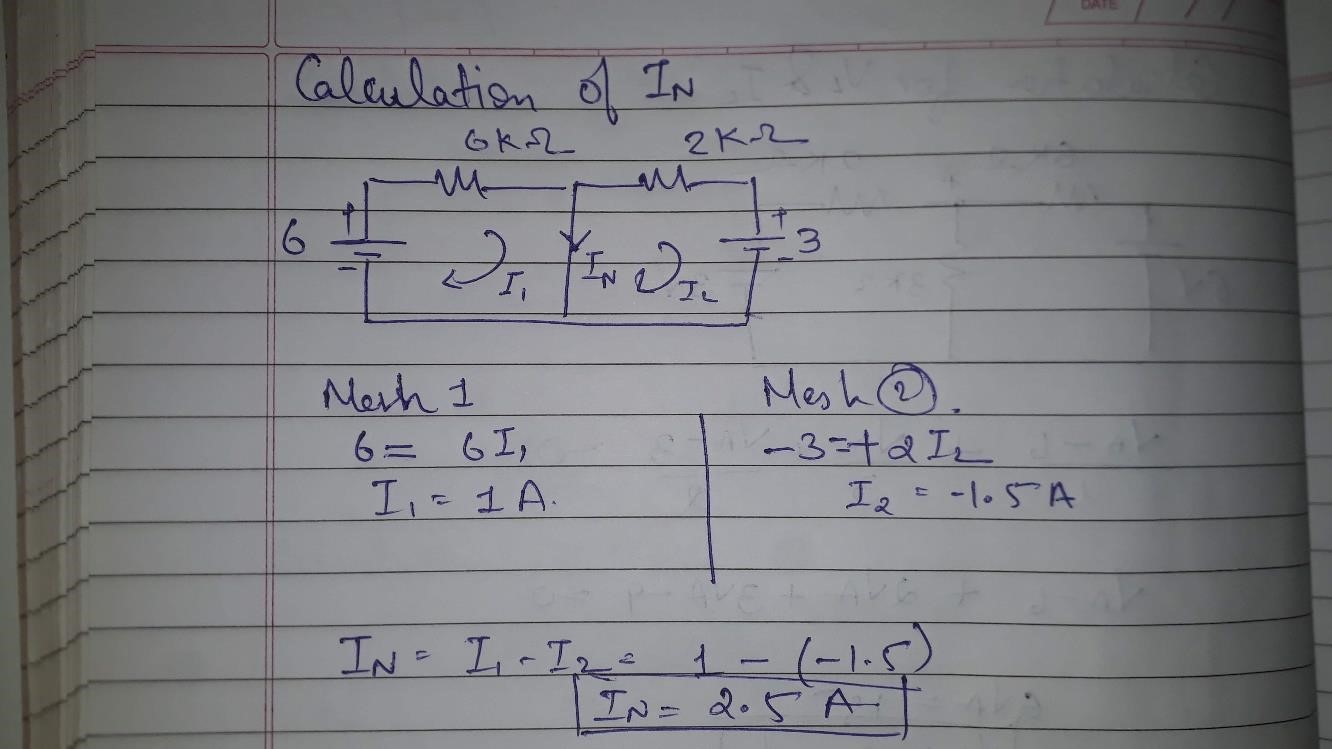 DATE
Calculation of IN
6KΩ 2KΩ
6 + - I1 IN I2 + - 3
Mesh 1
6 = 6I1
I1 = 1 A.
Mesh ②.
-3 = + 2 I2
I2 = -1.5 A
IN = I1 - I2 = 1 - (-1.5)
IN = 2.5 A